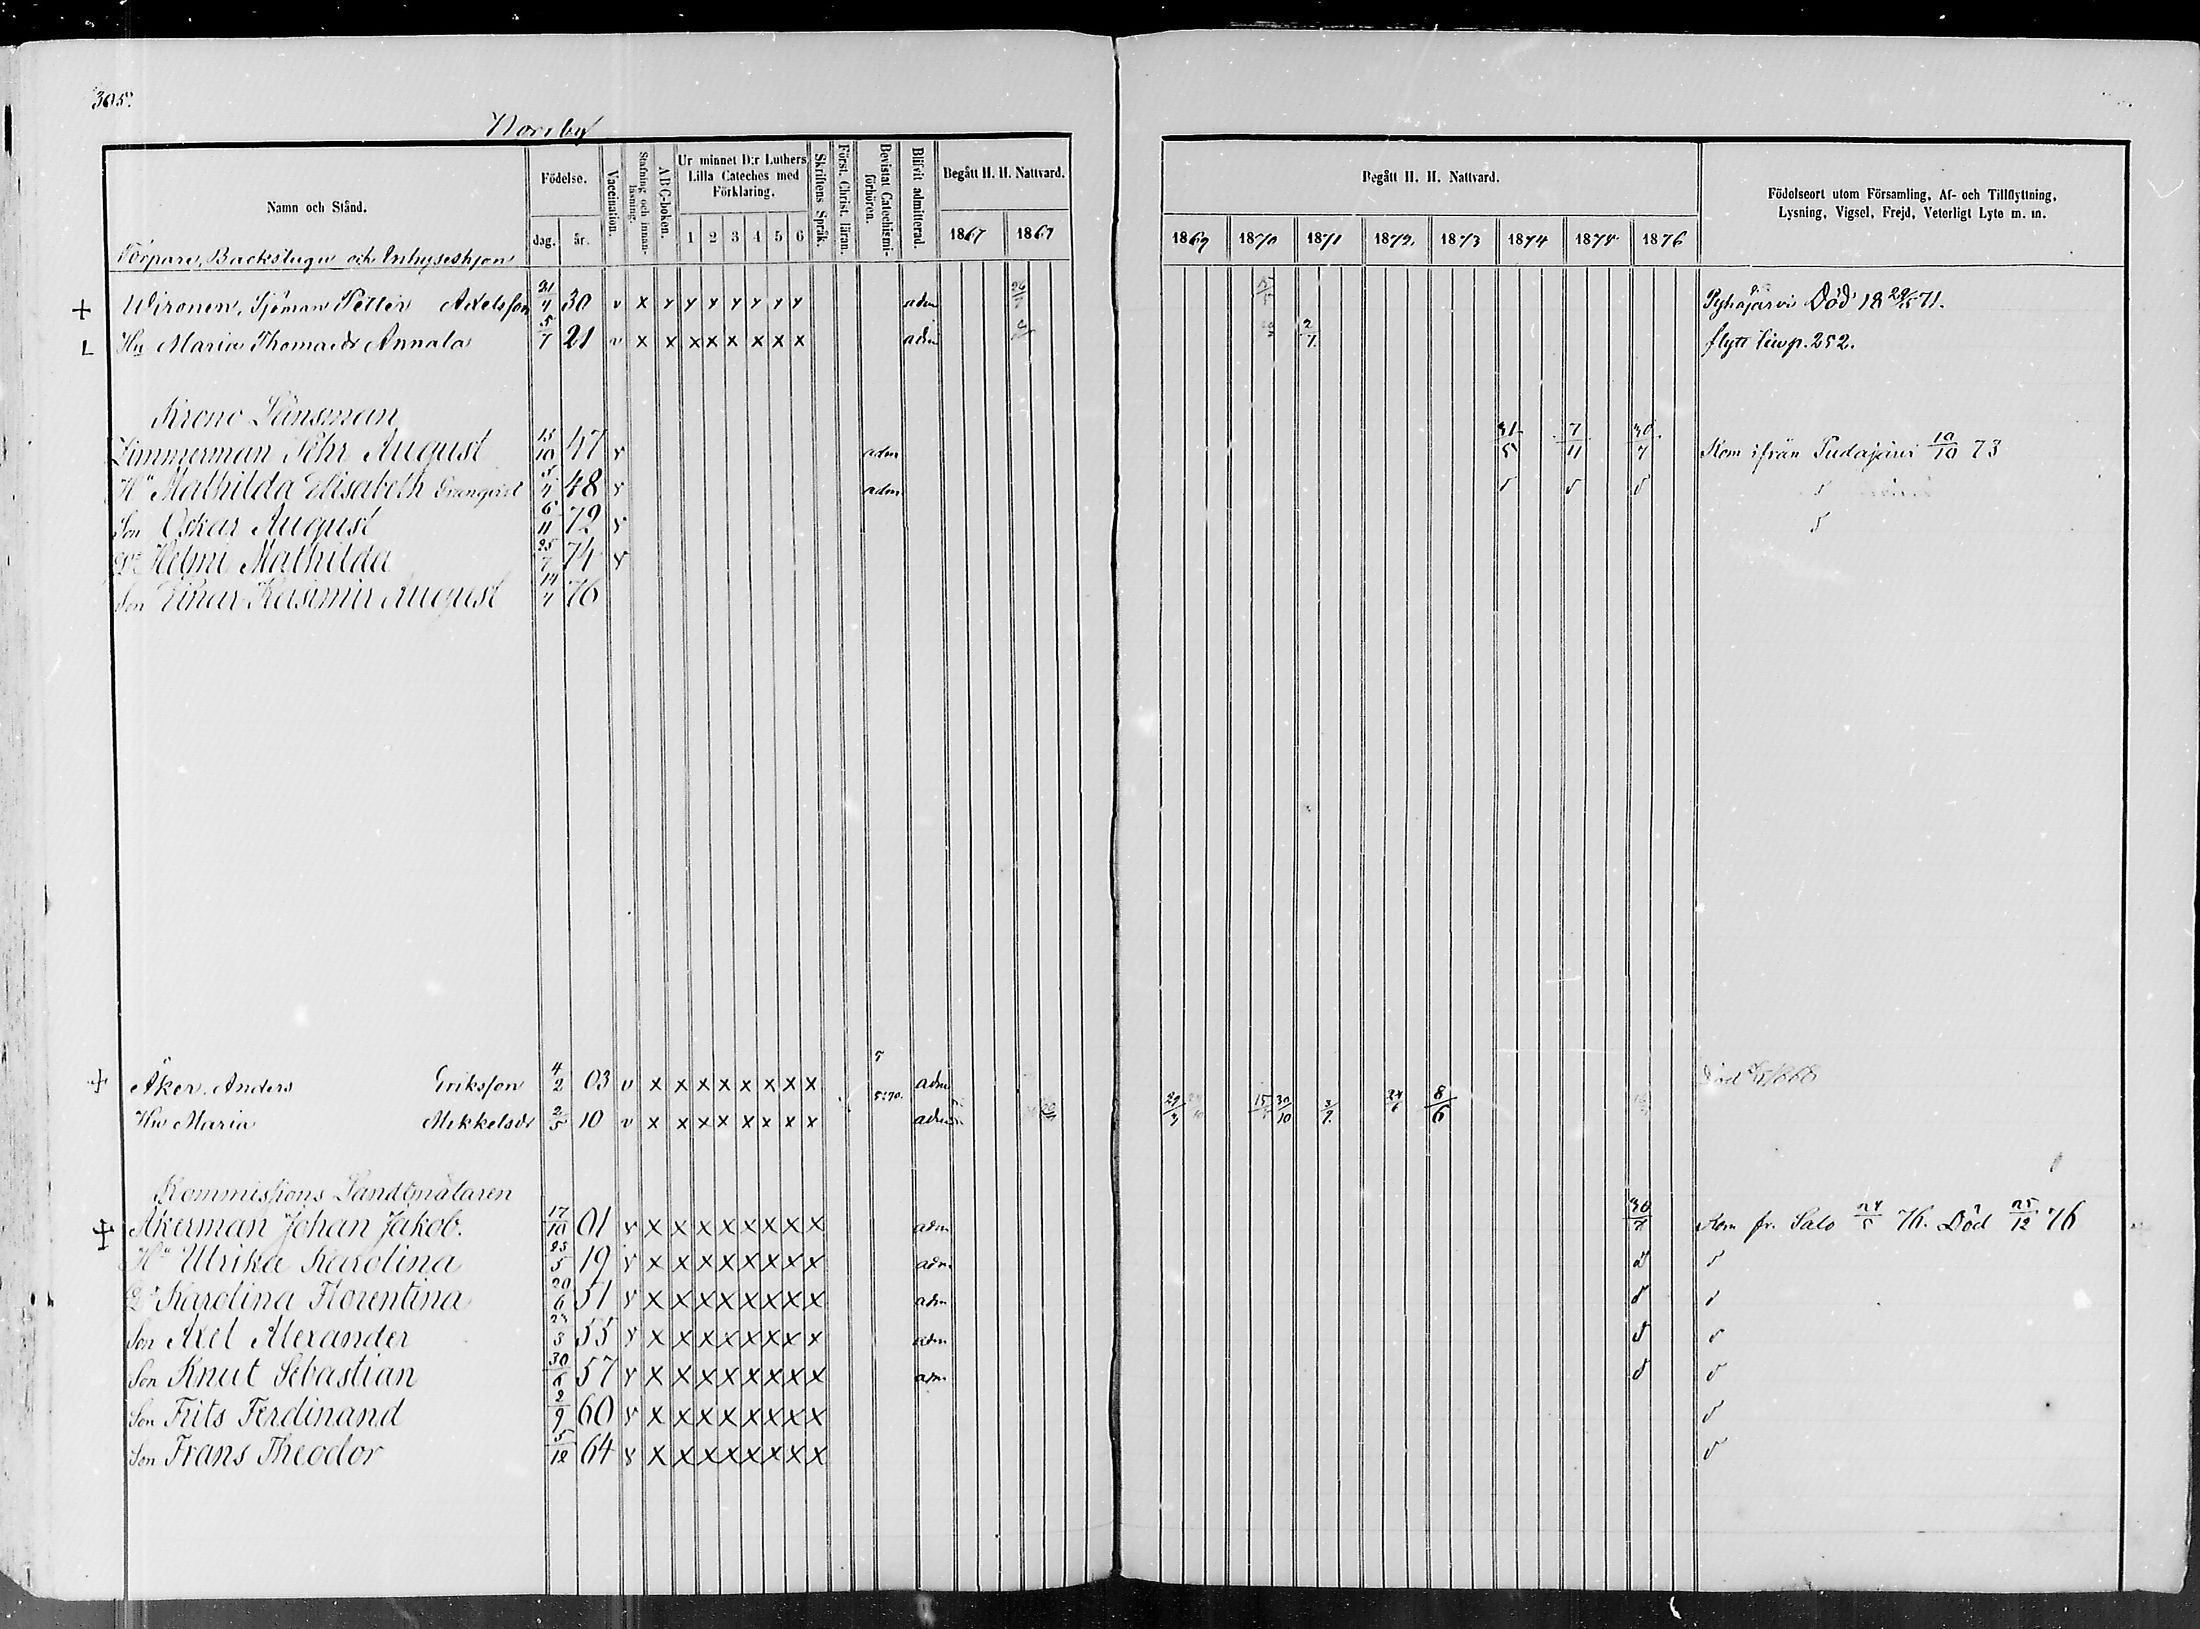 305.
Norrby
Namn och Stånd.
Födelse.
dag.
år.
Vaccination.
Stafning och innanläsning.
ABC-boken.
Ur minnet D:r Luthers Lilla Cateches med Förklaring.
1 2 3 4 5 6
Skriftens Språk.
Först. Christ. läran.
Bevistat Catechismiförhören.
Blifvit admitterad
Begått H. H. Nattvard.
1867 1867
Begått H. H. Nattvard.
1869 1870 1871 1872 1873 1874 1874 1876
Födelseort utom Församling, Af- och Tillflyttning,
Lysning, Vigsel, Frejd, Veterligt Lyte m. m.
Torpare, Backstugu och Inhyseshjon
+ Wironen, Sjöman Petter Axelsson 21/4 30 v x x x x x x x x adm Pyhäjärvi Död 18 29/5 71.
L Hu Maria Thomasdr Annala 5/7 21 v x x x x x x x x adm 2/7 flytt liwp. 252.
Krono Länsman
Zimmerman Pehr August 15/10 47 v adm 31/5 7/11 30/7 Kom ifrån Pudasjärvi 10/10 73
Hu Mathilda Elisabeth 5/4 48 v adm
Son Oskar August 6/11 72 v
Dr Helmi Mathilda 25/7 74 v
Son Einar Kasimir August 14/4 76
+ Åker. Anders Eriksson 4/2 03 v x x x x x x x x 5:70. adm
Hu Maria Mikkelsdr 2/5 10 v x x x x x x x x adm 29/3 15 30/10 3/9 24/6 8/6
Kommissions Landtmätaren
+ Åkerman Johan Jakob. 17/10 01 v x x x x x x x x adm 30/7 Kom fr. Salo 24/5 76. Död 25/12 76
Hu Ulrika Karolina 23/5 19 v x x x x x x x x adm
Dr Karolina Florentina 20/6 51 v x x x x x x x x adm
Son Axel Alexander 23/3 55 v x x x x x x x x adm
Son Knut Sebastian 30/6 57 v x x x x x x x x adm
Son Frits Ferdinand 2/9 60 v x x x x x x x x
Son Frans Theodor 5/12 64 v x x x x x x x x